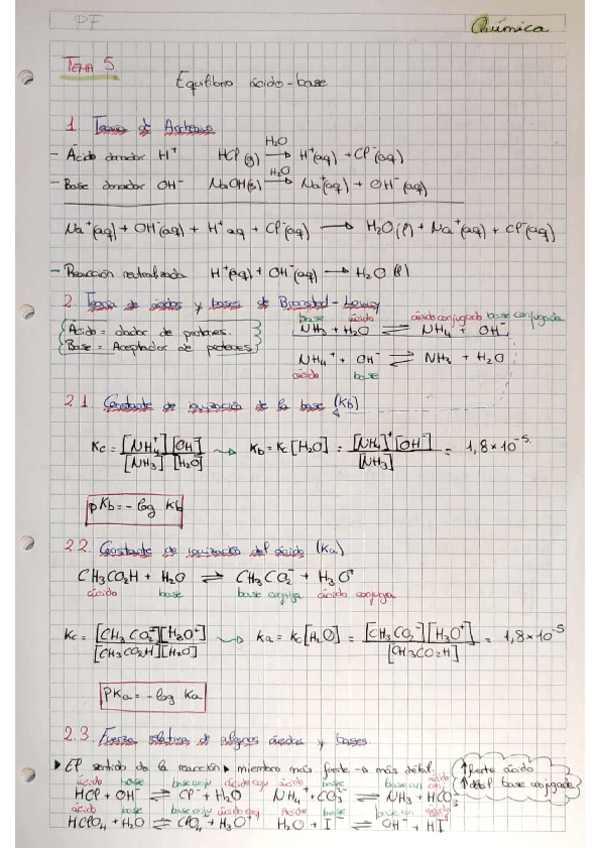 PF
Química
TEMA 5
Equilibrio ácido-base
1. Teoría de Arrhenius
- Ácido donador H⁺ HCl(g) →(H₂O) H⁺(aq) + Cl⁻(aq)
- Base donador OH⁻ NaOH(s) →(H₂O) Na⁺(aq) + OH⁻(aq)
Na⁺(aq) + OH⁻(aq) + H⁺ aq + Cl⁻(aq) → H₂O(l) + Na⁺(aq) + Cl⁻(aq)
- Reacción neutralizada H⁺(aq) + OH⁻(aq) → H₂O (l)
2. Teoría de ácidos y bases de Bronsted-Lowry
base ácido ácido conjugado base conjugada
Ácido = dador de protones. NH₃ + H₂O ⇌ NH₄ + OH⁻
Base = Aceptador de protones NH₄⁺ + OH⁻ ⇌ NH₃ + H₂O
ácido base
2.1. Constante de ionización de la base (Kb)
Kc = [NH₄⁺][OH⁻] / [NH₃][H₂O] → Kb = Kc [H₂O] = [NH₄]⁺[OH⁻] / [NH₃] = 1,8 × 10⁻⁵
pKb = -log Kb
2.2. Constante de ionización del ácido (Ka)
CH₃CO₂H + H₂O ⇌ CH₃CO₂⁻ + H₃O⁺
ácido base base conjuga ácido conjuga
Kc = [CH₃CO₂⁻][H₃O⁺] / [CH₃CO₂H][H₂O] → Ka = Kc [H₂O] = [CH₃CO₂⁻][H₃O⁺] / [CH₃CO₂H] = 1,8 × 10⁻⁵
pKa = -log Ka
2.3. Fuerza relativa de algunos ácidos y bases.
▸ El sentido de la reacción ▸ miembro más fuerte → a más débil.
↑ fuerte ácido
↑ débil base conjugada
ácido base base conj ácido conj ácido base base conj ácido
HCl + OH⁻ ⇌ Cl⁻ + H₂O NH₄⁺ + CO₃⁻ ⇌ NH₃ + HCO₃
ácido base base conj ácido conj Ácido base base con ácido
HClO₄ + H₂O ⇌ ClO₄⁻ + H₃O⁺ H₂O + I⁻ ⇌ OH⁻ + HI